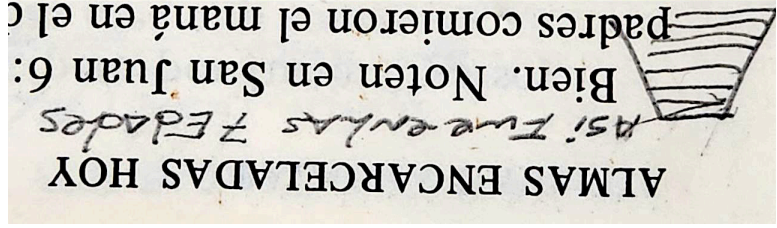 ALMAS ENCARCELADAS HOY
Asi Fue en Las 7 Edades
Bien. Noten en San Juan 6:
padres comieron el maná en el